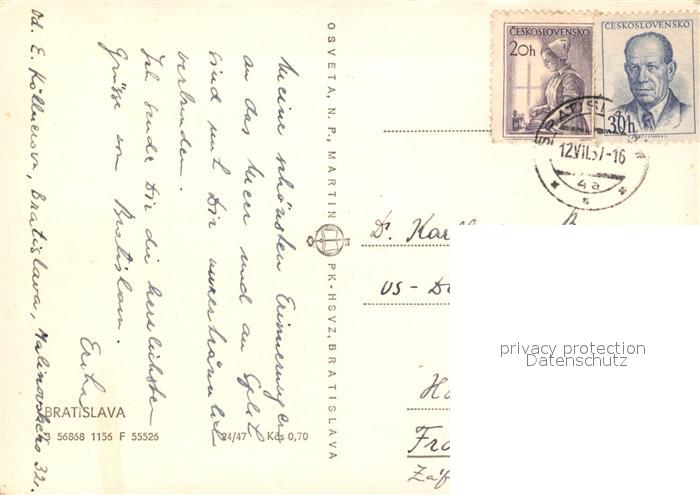 Od. E. Köllnerova, Bratislava, Malinovského 32.
Meine schönsten Erinnerungen
an das Meer und an Sylt
sind mit Dir unzertrennlich
verbunden.
Ich sende Dir die herzlichsten
Grüsse von Bratislava.
Erika
BRATISLAVA
56868 1156 F 55526
24/47 Kčs 0,70
OSVETA, N. P., MARTIN
PK-HSVZ, BRATISLAVA
ČESKOSLOVENSKO
20h
ČESKOSLOVENSKO
30h
BRATISLAVA
12.VII.57-16
4a
Dr. Karl
US - D
H
Fra
Záp
privacy protection
Datenschutz